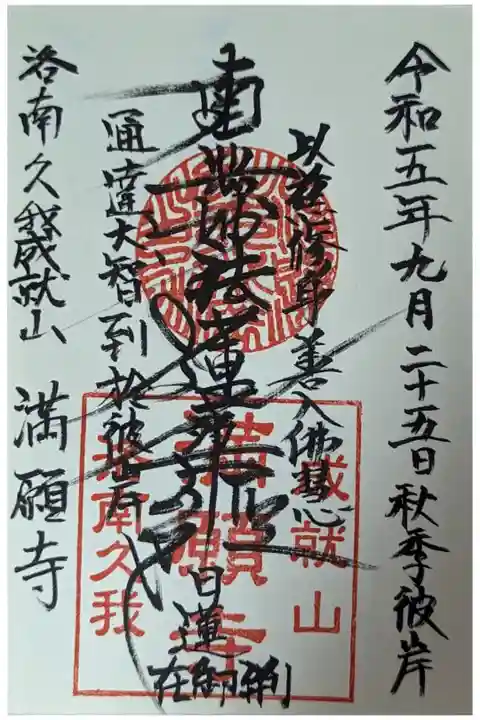 令和五年九月二十五日秋季彼岸
以慈修身 善入佛慧
南無妙法蓮華経
日蓮
在御判
通達大智到於彼岸
洛南久我成就山 満願寺
成就山
満願寺
洛南久我